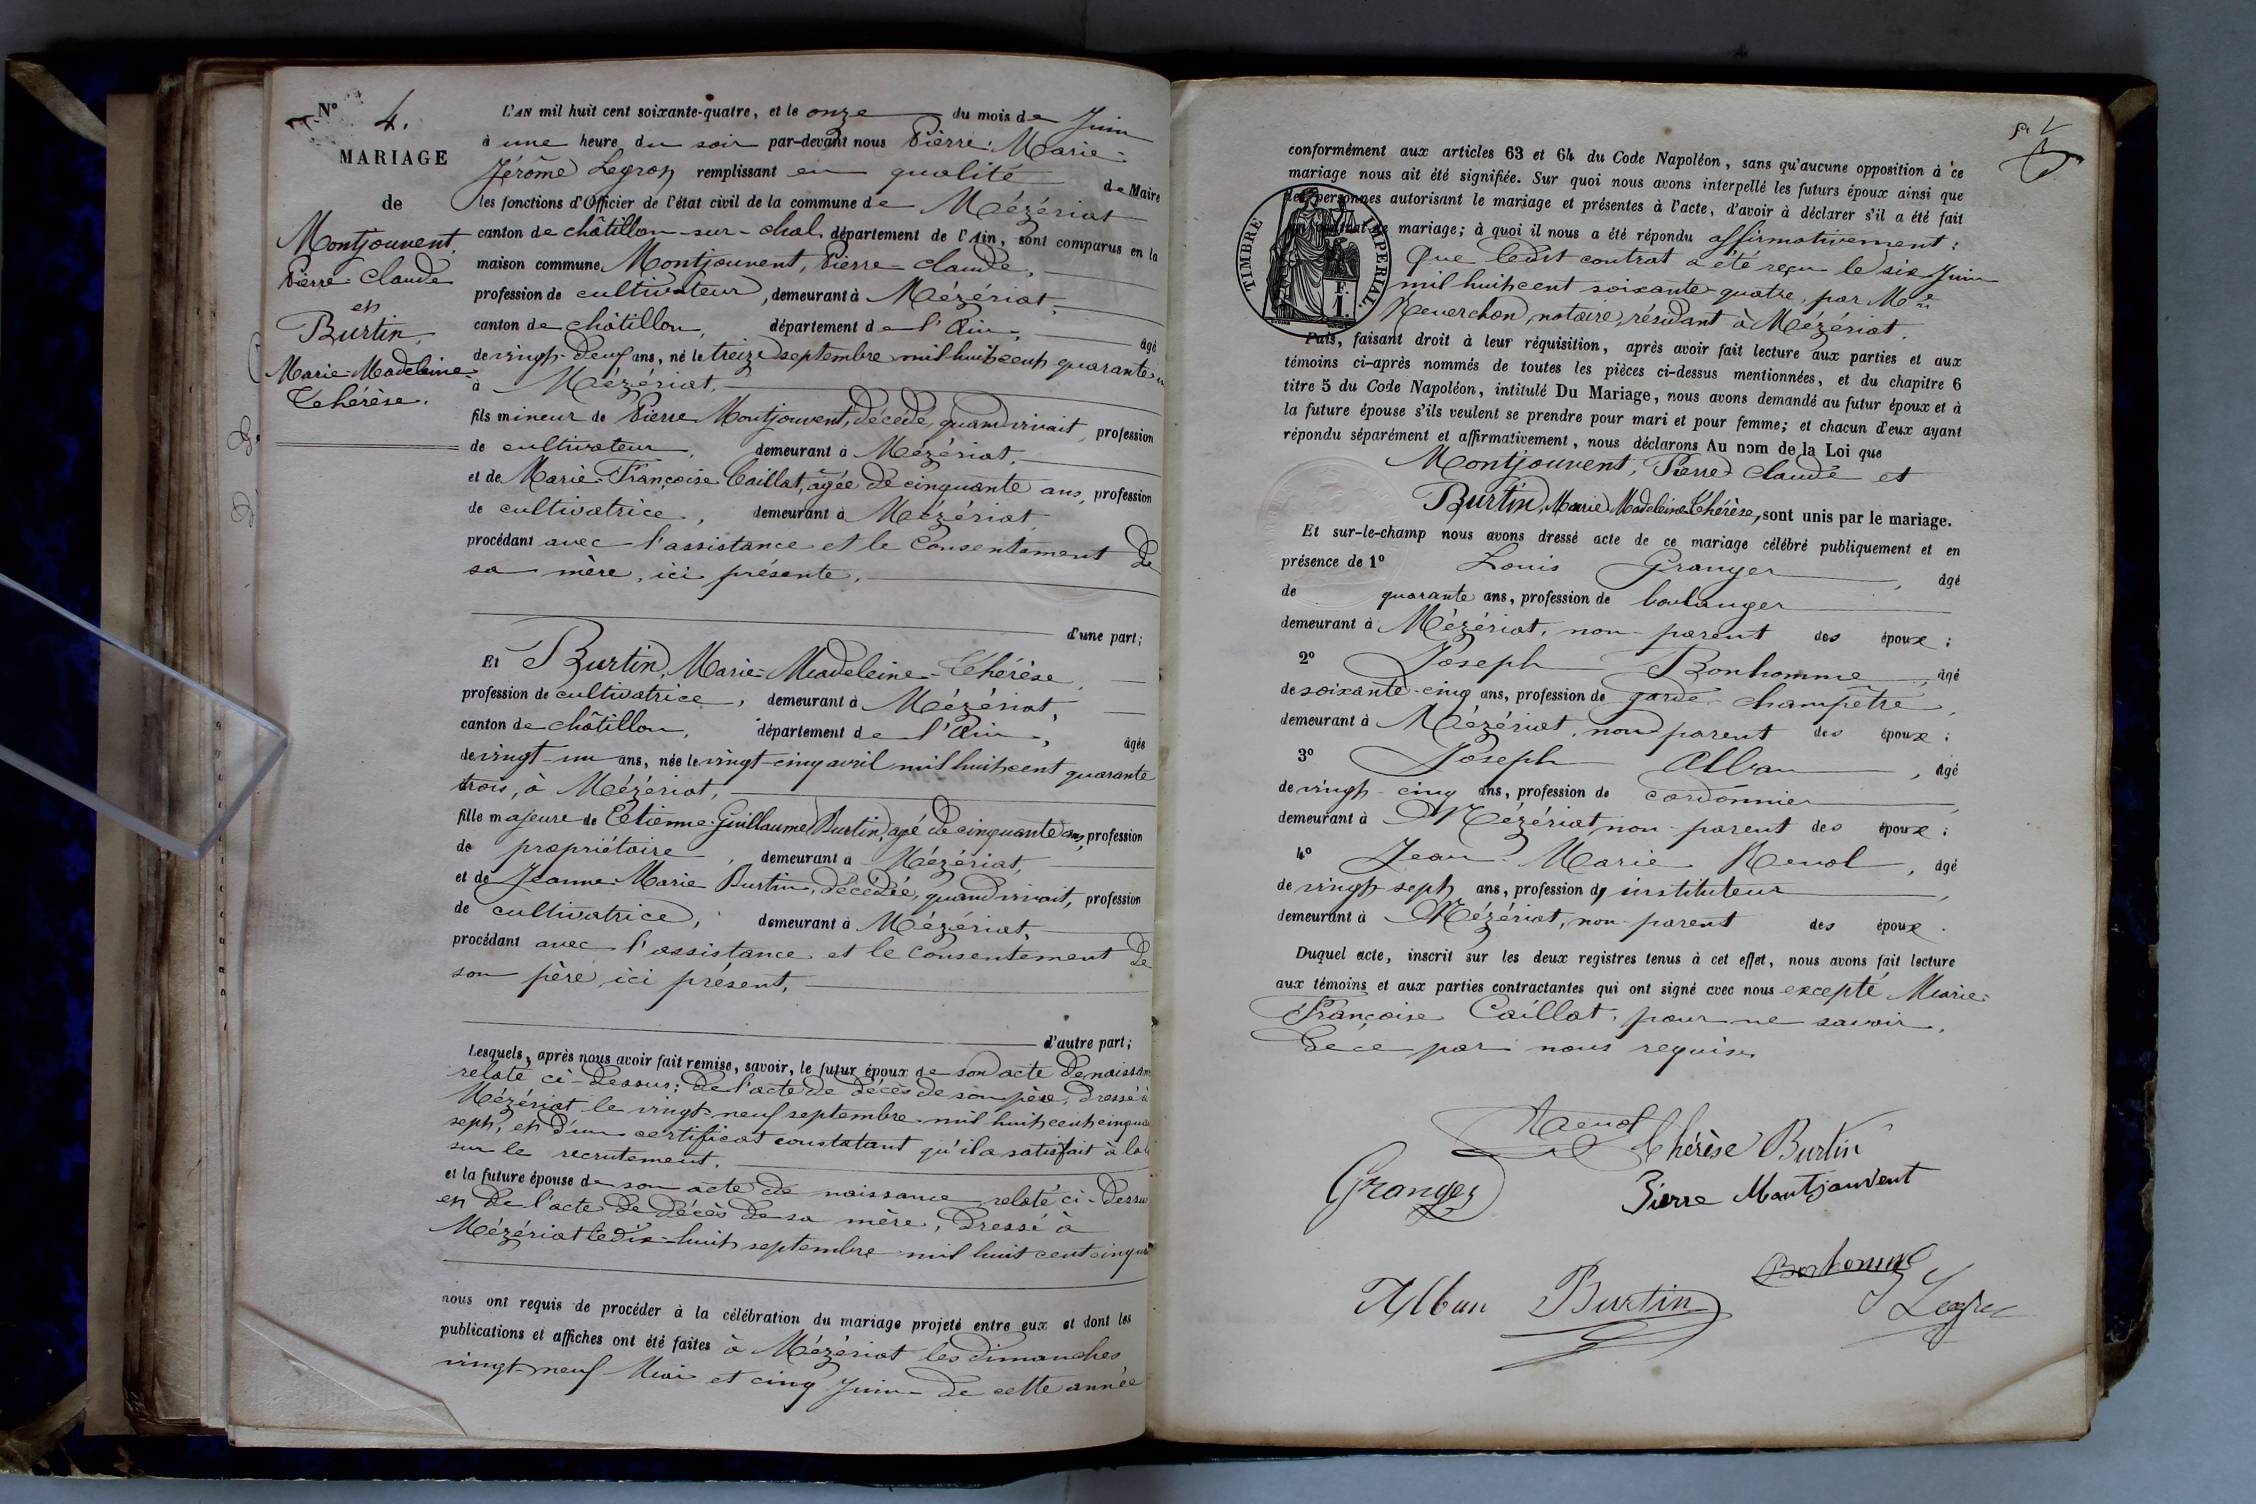 N° 4.
MARIAGE
de
Montjouvent,
Pierre-Claude
et
Burtin,
Marie-Madeleine-
Thérèse.
L'AN mil huit cent soixante-quatre, et le onze du mois de Juin
à une heure du soir par-devant nous Pierre-Marie-
Jérôme Legros remplissant en qualité de Maire
les fonctions d'Officier de l'état civil de la commune de Mézériat
canton de châtillon-sur-chal. département de l'Ain, sont comparus en la
maison commune Montjouvent, Pierre-claude,
profession de cultivateur, demeurant à Mézériat,
canton de châtillon, département de l'Ain, âgé
de vingt-deux ans, né le treize septembre mil huit cent quarante
à Mézériat,
fils mineur de Pierre Montjouvent, décédé, quand vivait, profession
de cultivateur, demeurant à Mézériat,
et de Marie-Françoise Caillat, âgée de cinquante ans, profession
de cultivatrice, demeurant à Mézériat,
procédant avec l'assistance et le consentement de
sa mère, ici présente,
d'une part;
Et Burtin, Marie-Madeleine-Thérèse,
profession de cultivatrice, demeurant à Mézériat,
canton de châtillon, département de l'Ain, âgée
de vingt-un ans, née le vingt-cinq avril mil huit cent quarante
trois, à Mézériat,
fille majeure de Etienne-Guillaume Burtin, âgé de cinquante ans, profession
de propriétaire, demeurant à Mézériat,
et de Jeanne-Marie Burtin, décédée, quand vivait, profession
de cultivatrice, demeurant à Mézériat,
procédant avec l'assistance et le consentement de
son père, ici présent,
d'autre part;
Lesquels, après nous avoir fait remise, savoir, le futur époux de son acte de naissance
relaté ci-dessus; de l'acte de décès de son père, dressé à
Mézériat le vingt-neuf septembre mil huit cent cinquante
sept, et d'un certificat constatant qu'il a satisfait à la loi
sur le recrutement.
et la future épouse de son acte de naissance relaté ci-dessus
et de l'acte de décès de sa mère, dressé à
Mézériat le dix-huit septembre mil huit cent cinquante
nous ont requis de procéder à la célébration du mariage projeté entre eux et dont les
publications et affiches ont été faites à Mézériat les dimanches
vingt-neuf Mai et cinq Juin de cette année
conformément aux articles 63 et 64 du Code Napoléon, sans qu'aucune opposition à ce
mariage nous ait été signifiée. Sur quoi nous avons interpellé les futurs époux ainsi que
des personnes autorisant le mariage et présentes à l'acte, d'avoir à déclarer s'il a été fait
un contrat de mariage; à quoi il nous a été répondu affirmativement:
Que ledit contrat a été reçu le six Juin
mil huit cent soixante-quatre, par Me
Reverchon, notaire, résidant à Mézériat.
TIMBRE IMPERIAL.
F.
1.
Puis, faisant droit à leur réquisition, après avoir fait lecture aux parties et aux
témoins ci-après nommés de toutes les pièces ci-dessus mentionnées, et du chapitre 6
titre 5 du Code Napoléon, intitulé Du Mariage, nous avons demandé au futur époux et à
la future épouse s'ils veulent se prendre pour mari et pour femme; et chacun d'eux ayant
répondu séparément et affirmativement, nous déclarons Au nom de la Loi que
Montjouvent, Pierre-Claude et
Burtin, Marie-Madeleine-Thérèse, sont unis par le mariage.
Et sur-le-champ nous avons dressé acte de ce mariage célébré publiquement et en
présence de 1° Louis Granger, âgé
de quarante ans, profession de boulanger
demeurant à Mézériat, non-parent des époux;
2° Joseph Bonhomme, âgé
de soixante-cinq ans, profession de garde-champêtre,
demeurant à Mézériat, non parent des époux;
3° Joseph Alban, âgé
de vingt-cinq ans, profession de cordonnier,
demeurant à Mézériat, non-parent des époux;
4° Jean-Marie Renol, âgé
de vingt-sept ans, profession d'instituteur,
demeurant à Mézériat, non-parent des époux.
Duquel acte, inscrit sur les deux registres tenus à cet effet, nous avons fait lecture
aux témoins et aux parties contractantes qui ont signé avec nous excepté Marie-
Françoise Caillat, pour ne savoir,
de ce par nous requise.
Renol
Thérèse Burtin
Granger
Pierre Montjouvent
Bonhomme
Alban Burtin
J Legros